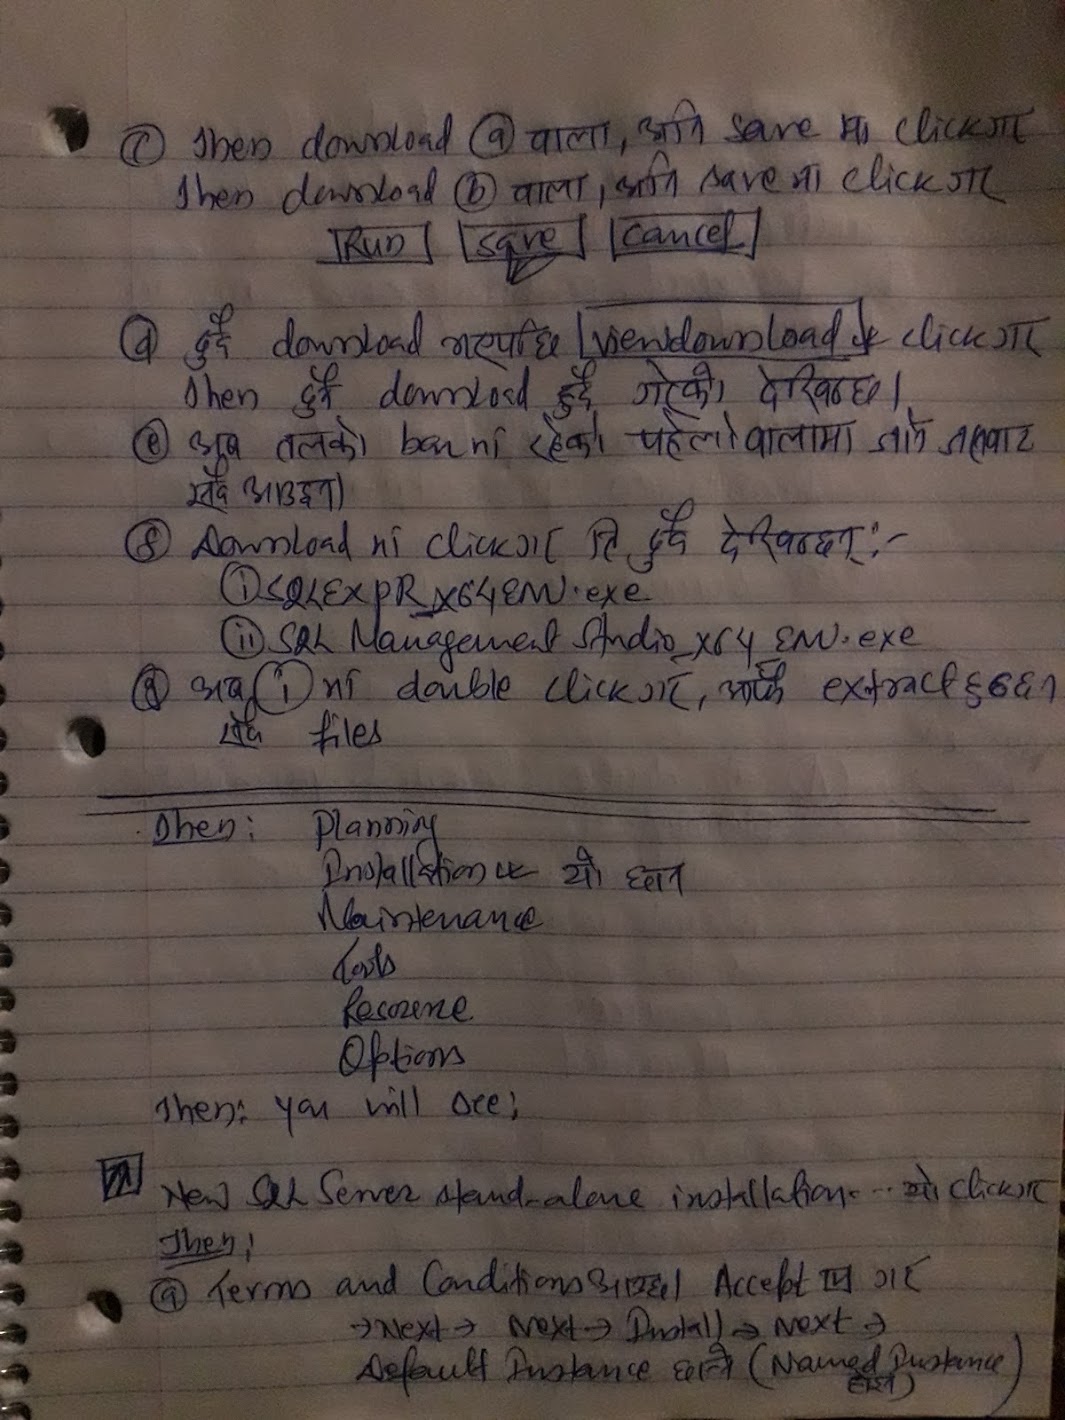 ⓒ Then download ⓐ वाला, अनि save मा click गर
Then download ⓑ वाला, अनि save मा click गर
Run Save Cancel
ⓓ दुवै download गरेपछि View download click गर
Then दुवै download हुँदै गरेको देखिन्छ।
ⓔ अब तलको bar मा रहेको पहेलो वालामा जाने
आउछन।
ⓕ Download मा click गर दुवै देखिन्छन् :-
ⓘ SQLEXPR_x64 EN.exe
(ii) SQL Management Studio_x64 EN.exe
ⓖ अब ⓘ मा double click गर, extract हुन्छन
files
Then: Planning
Installation ← यो छान
Maintenance
Tools
Resource
Options
Then: you will see;
New SQL Server stand-alone installation... यो click गर
Then;
ⓐ Terms and Conditions आउछ। Accept गर
→ Next → Next → Install → Next →
Default Instance छान्ने (Named Instance
होइन)